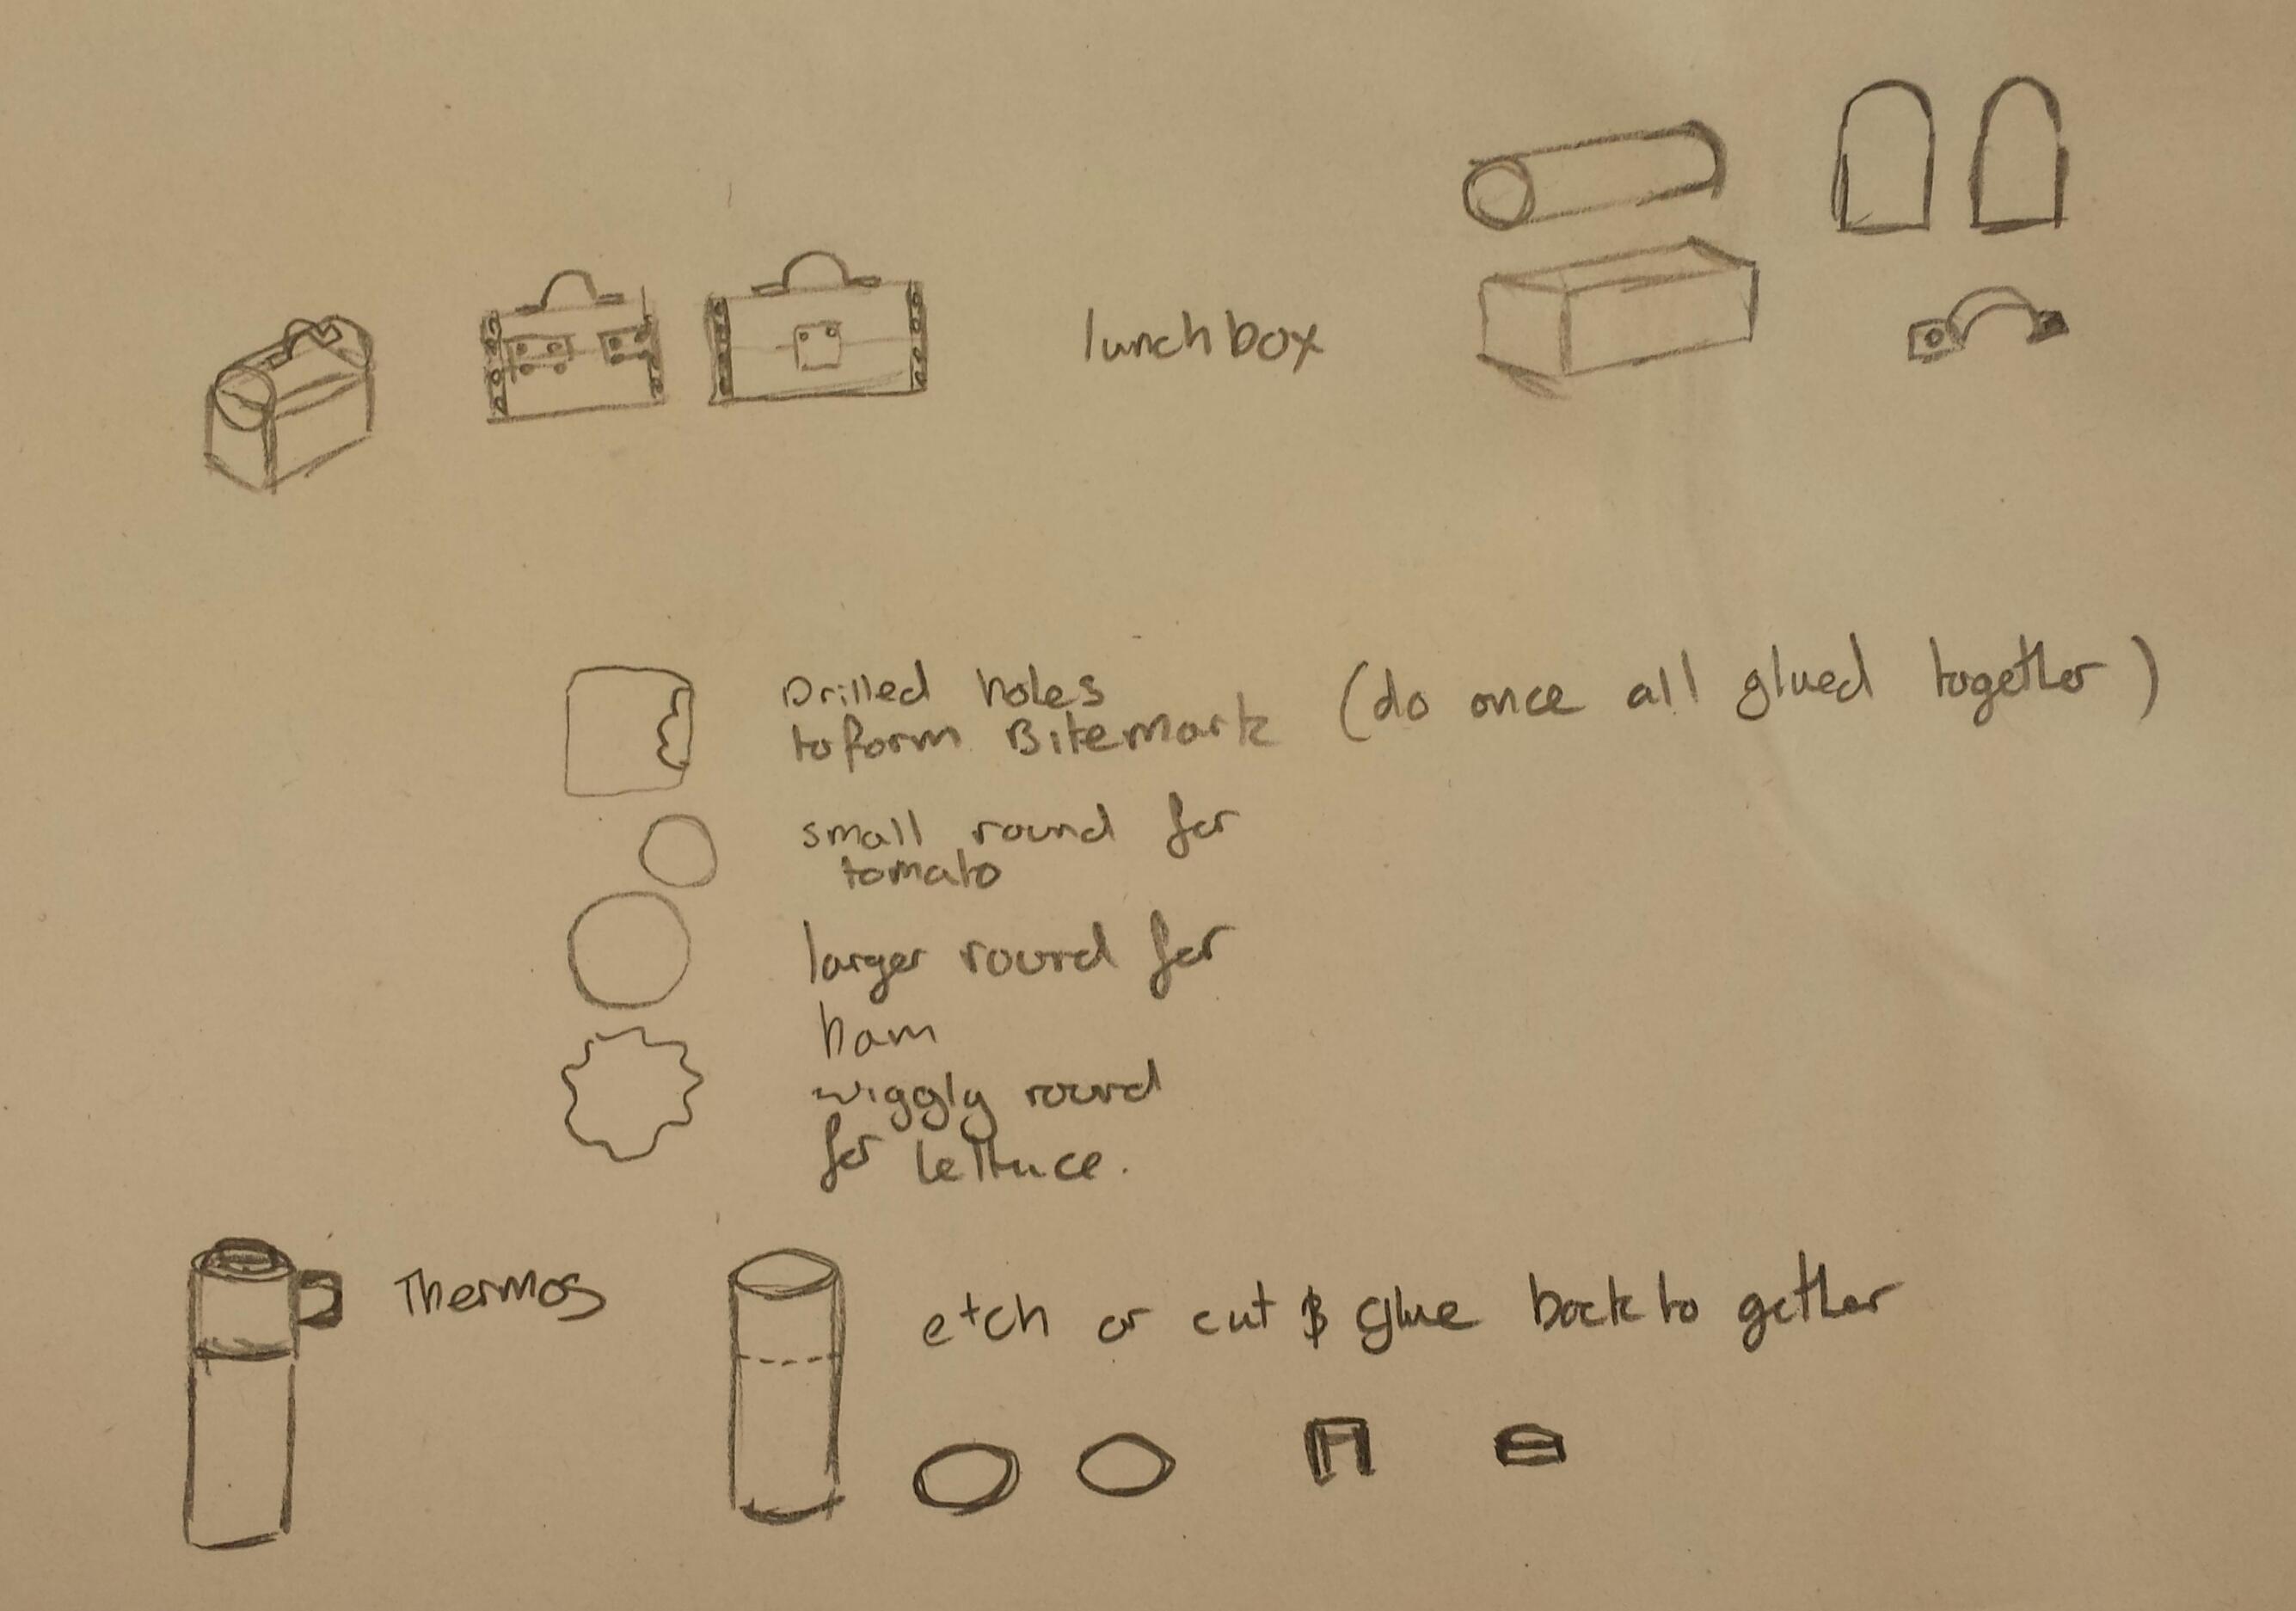 lunchbox
Drilled holes (do once all glued together)
to form Bitemark
small round for
tomato
larger round for
ham
wiggly round
for lettuce.
Thermos
etch or cut & glue back to gether